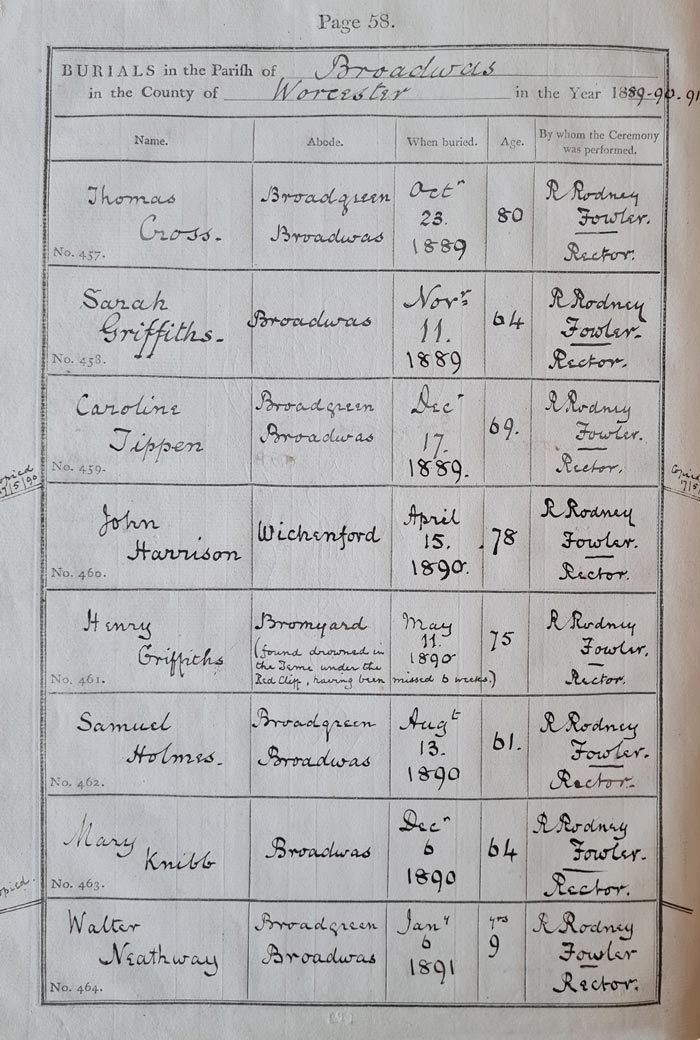 Page 58.
BURIALS in the Parish of Broadwas
in the County of Worcester in the Year 1889-90.91
Name. Abode. When buried. Age. By whom the Ceremony was performed.
Thomas Broadgreen Octr R Rodney
Cross. Broadwas 23. 80 Fowler.
No. 457. 1889 Rector.
Sarah Novr R Rodney
Griffiths. Broadwas 11. 64 Fowler.
No. 458. 1889 Rector.
Caroline Broadgreen Decr R Rodney
Tippen Broadwas 17. 69. Fowler.
No. 459. 1889. Rector.
copied
17/5/90
Copied
17/5/
John April R Rodney
Harrison Wichenford 15. 78 Fowler.
No. 460. 1890. Rector.
Henry Bromyard May R Rodney
Griffiths (found drowned in 11. 75 Fowler.
the Teme under the 1890
No. 461. Red Cliff, having been missed 6 weeks.) Rector.
Samuel Broadgreen Augt R Rodney
Holmes. Broadwas 13. 61. Fowler.
No. 462. 1890 Rector.
Mary Decr R Rodney
Knibb Broadwas 6 64 Fowler.
No. 463. 1890 Rector.
copied.
Walter Broadgreen Jany yrs R Rodney
Neathway Broadwas 6 9 Fowler
No. 464. 1891 Rector.